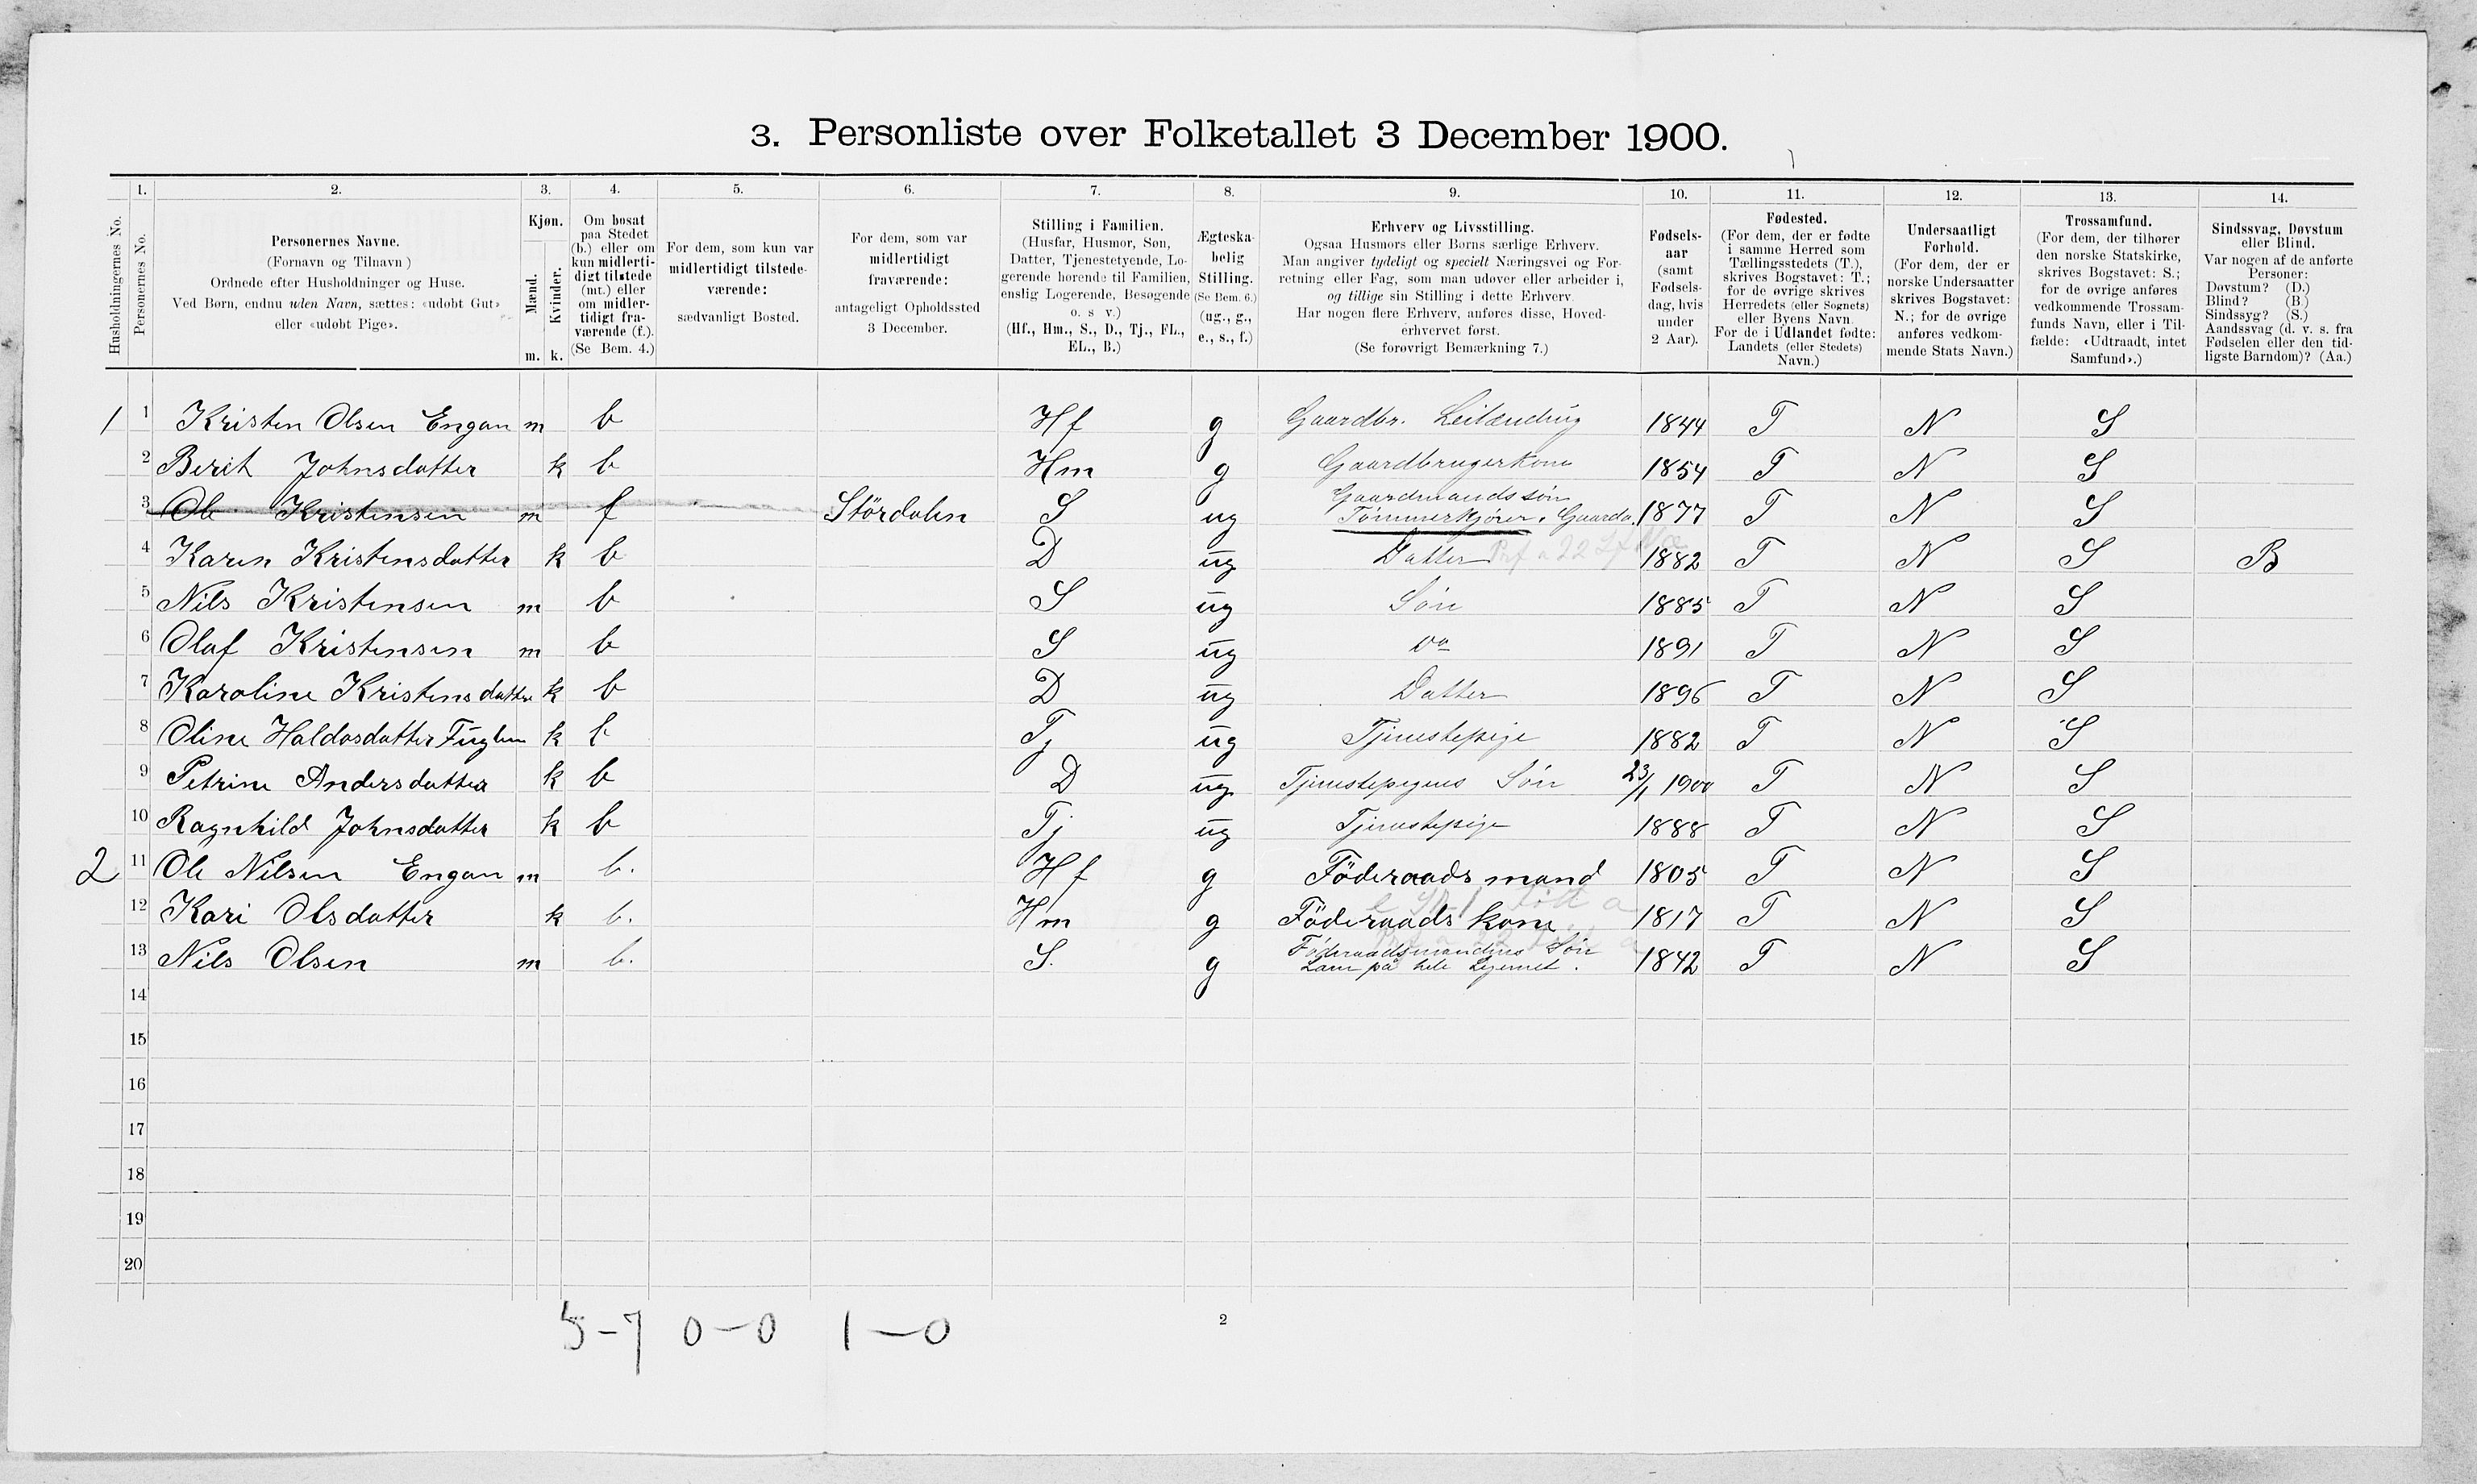 3. Personliste over Folketallet 3 December 1900.
1. 2. 3. 4. 5. 6. 7. 8. 9. 10. 11. 12. 13. 14.
Husholdningernes No.
Personernes No.
Personernes Navne.
(Fornavn og Tilnavn)
Ordnede efter Husholdninger og Huse.
Ved Børn, endnu uden Navn, sættes: «udøbt Gut»
eller «udøbt Pige».
Kjøn.
Mænd.
Kvinder.
m. k.
Om bosat
paa Stedet
(b.) eller om
kun midlerti-
digt tilstede
(mt.) eller
om midler-
tidigt fra-
værende (f.).
(Se Bem. 4.)
For dem, som kun var
midlertidigt tilstede-
værende:
sædvanligt Bosted.
For dem, som var
midlertidigt
fraværende:
antageligt Opholdssted
3 December.
Stilling i Familien.
(Husfar, Husmor, Søn,
Datter, Tjenestetyende, Lo-
gerende hørende til Familien,
enslig Logerende, Besøgende
o. s v.)
(Hf., Hm., S., D., Tj., FL.,
EL., B.)
Ægteska-
belig
Stilling.
(Se Bem. 6.)
(ug., g.,
e., s., f.)
Erhverv og Livsstilling.
Ogsaa Husmors eller Børns særlige Erhverv.
Man angiver tydeligt og specielt Næringsvei og For-
retning eller Fag, som man udøver eller arbeider i,
og tillige sin Stilling i dette Erhverv.
Har nogen flere Erhverv, anføres disse, Hoved-
erhvervet først.
(Se forøvrigt Bemærkning 7.)
Fødsels-
aar
(samt
Fødsels-
dag, hvis
under
2 Aar).
Fødested.
(For dem, der er fødte
i samme Herred som
Tællingsstedets (T.),
skrives Bogstavet: T.;
for de øvrige skrives
Herredets (eller Sognets)
eller Byens Navn
For de i Udlandet fødte:
Landets (eller Stedets)
Navn.)
Undersaatligt
Forhold.
(For dem, der er
norske Undersaatter
skrives Bogstavet:
N.; for de øvrige
anføres vedkom-
mende Stats Navn.)
Trossamfund.
(For dem, der tilhører
den norske Statskirke,
skrives Bogstavet: S.;
for de øvrige anføres
vedkommende Trossam-
funds Navn, eller i Til-
fælde: «Udtraadt, intet
Samfund».)
Sindssvag, Døvstum
eller Blind.
Var nogen af de anførte
Personer:
Døvstum? (D.)
Blind? (B.)
Sindssyg? (S.)
Aandssvag (d. v. s. fra
Fødselen eller den tid-
ligste Barndom)? (Aa.)
1 1 Kristen Olsen Engan m b Hf g Gaardbr. Leilænding 1844 T N S
2 Berit Johnsdatter k b Hm g Gaardbrugerkone 1854 T N S
3 Ole Kristensen m f Stördalen S ug Gaardmandssøn
Tømmerkjører. 1877 T N S
4 Karen Kristensdatter k b D ug Datter 1882 T N S B
5 Nils Kristensen m b S ug Sön 1885 T N S
6 Olaf Kristensen m b S ug do 1891 T N S
7 Karoline Kristensdatter k b D ug Datter 1896 T N S
8 Oline Haldosdatter Fuglem k b Tj ug Tjenestepige 1882 T N S
9 Petrine Andersdatter k b D ug Tjenestepigens Sön 23/1 1900 T N S
10 Ragnhild Johnsdatter k b Tj ug Tjenestepige 1888 T N S
2 11 Ole Nilsen Engan m b. Hf g Föderaads mand 1805 T N S
12 Kari Olsdatter k b. Hm g Föderaads kone 1817 T N S
13 Nils Olsen m b. S. g Föderaadsmandens Sön
Lam på hele Legemet. 1842 T N S
14
15
16
17
18
19
20
5-7 0-0 1-0
2